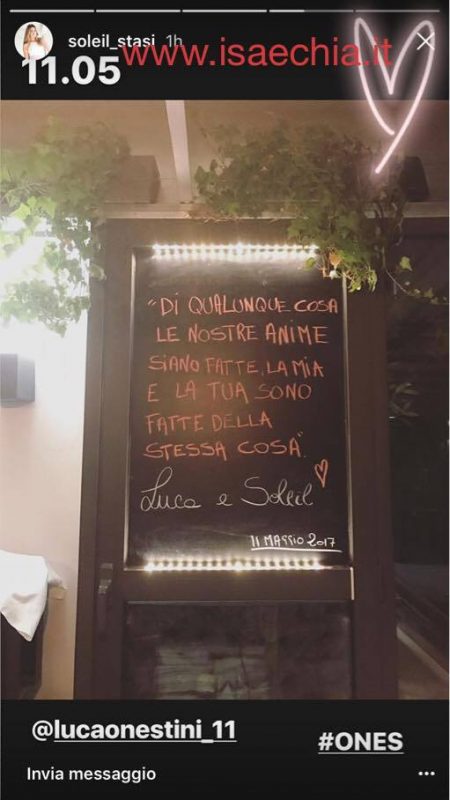 soleil_stasi 1h
www.isaechia.it
11.05
"DI QUALUNQUE COSA
LE NOSTRE ANIME
SIANO FATTE, LA MIA
E LA TUA SONO
FATTE DELLA
STESSA COSA"
Luca e Soleil
11 MAGGIO 2017
@lucaonestini_11
#ONES
Invia messaggio